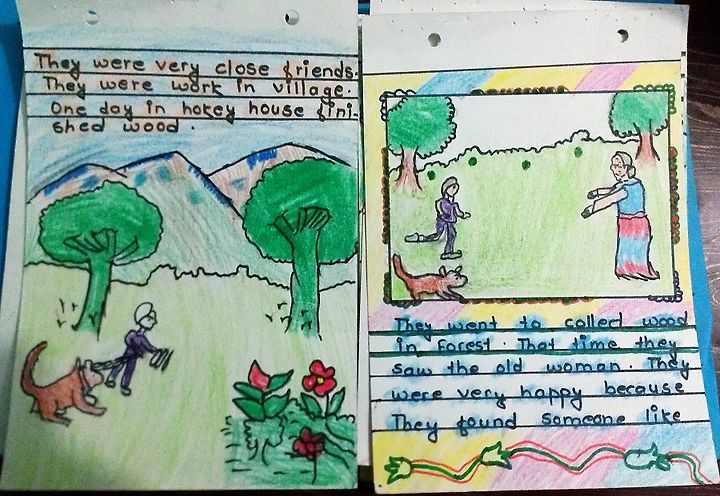 They were very close friends.
They were work in village.
One day in hokey house fini-
shed wood.
They went to collect wood
in forest. That time they
saw the old woman. They
were very happy because
They found someone like